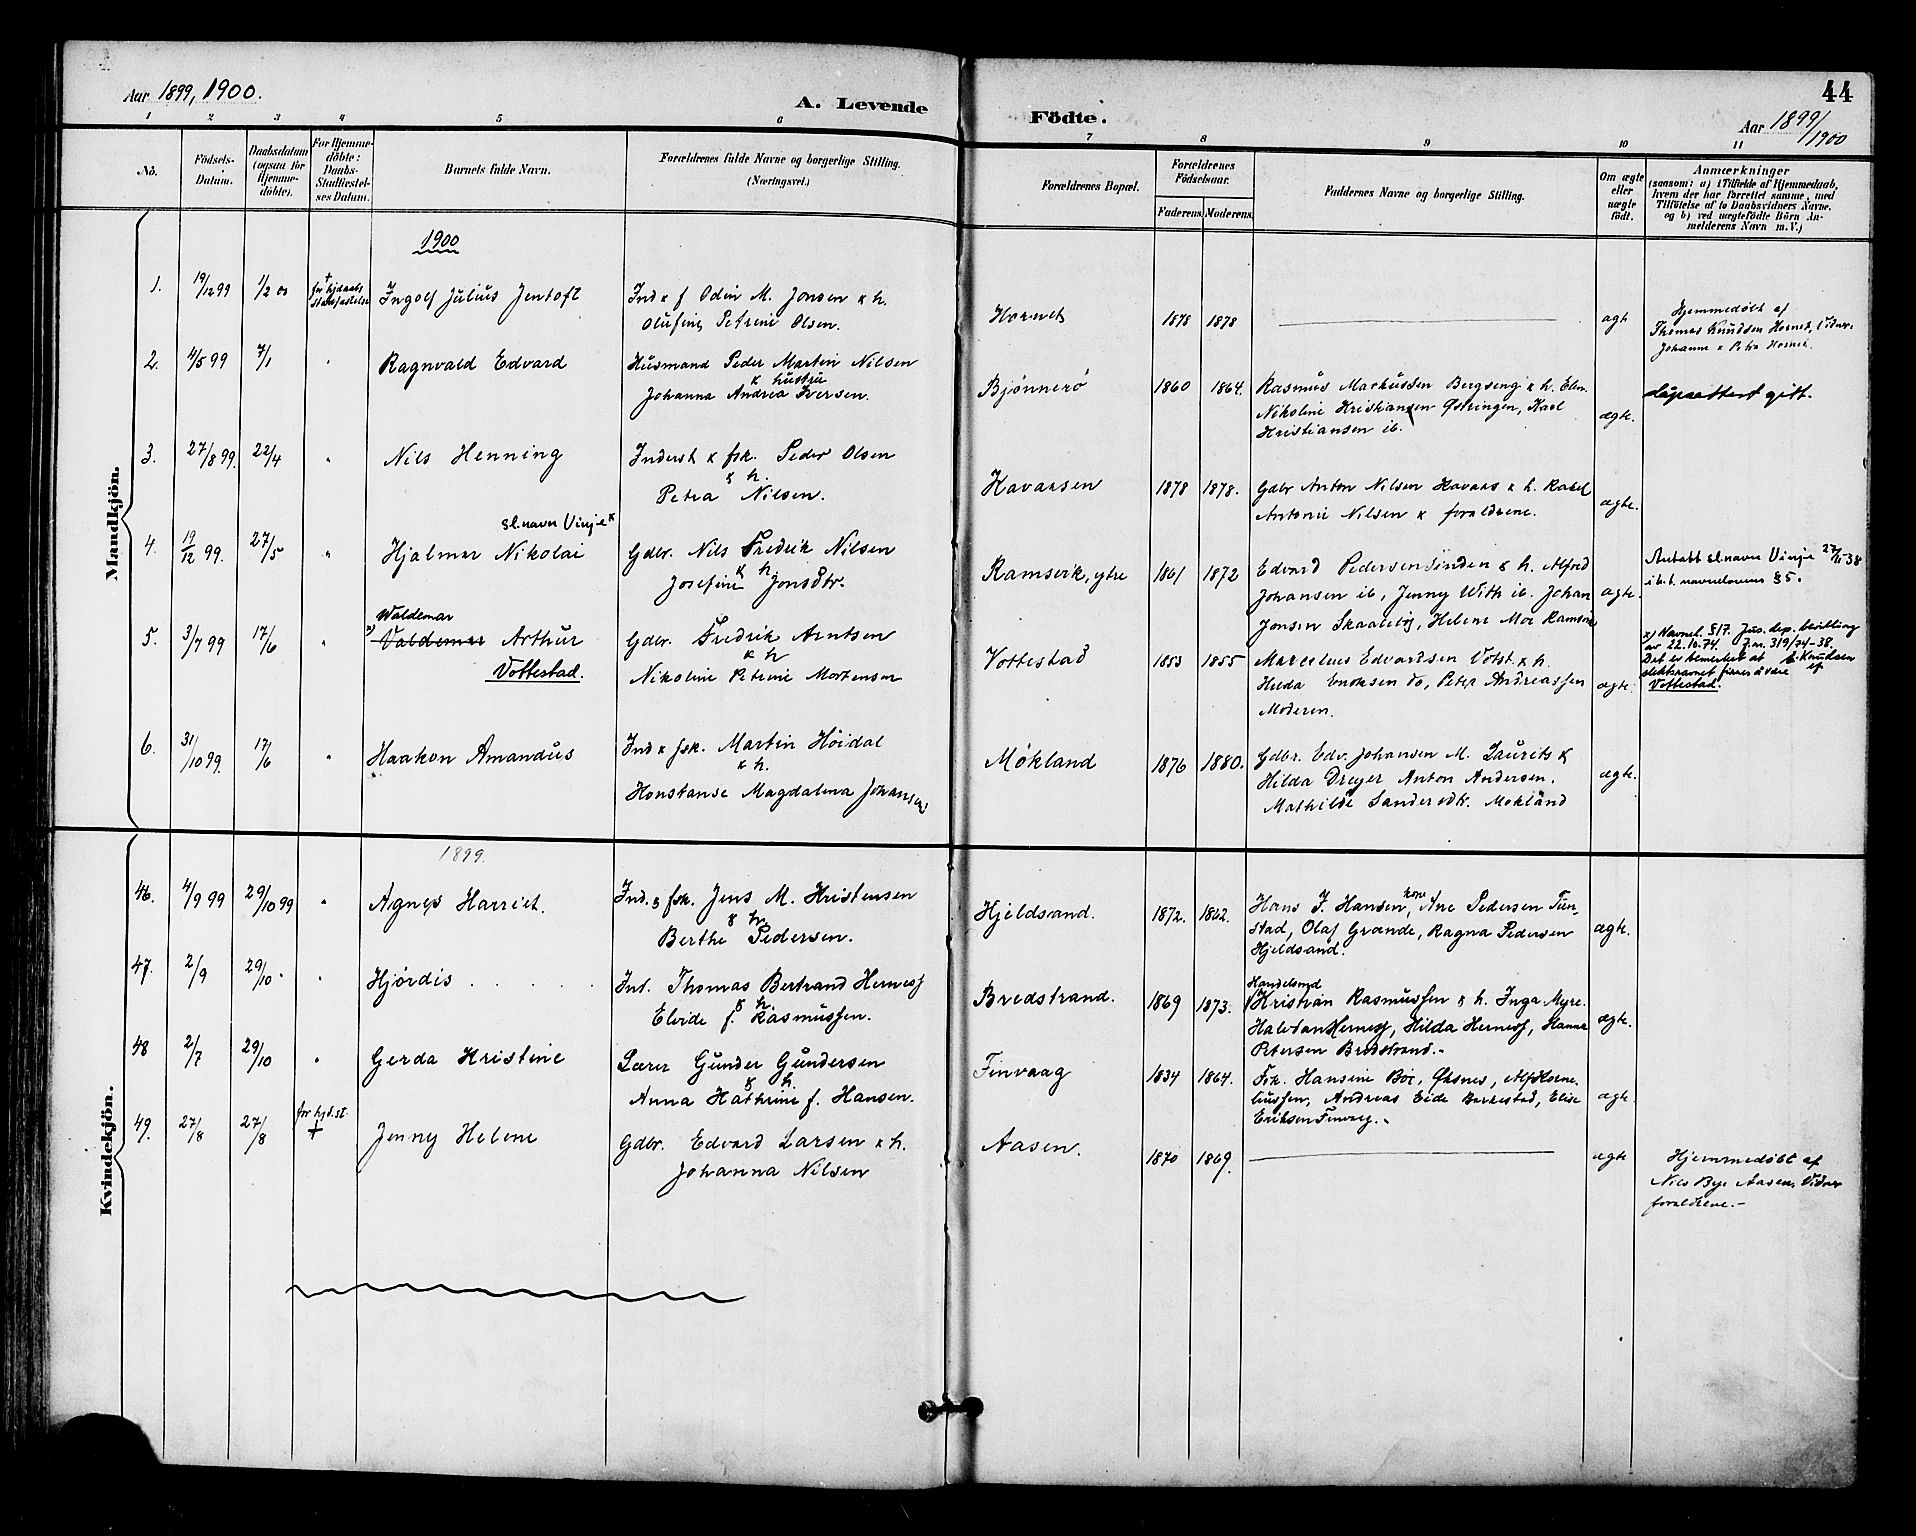 Aar 1899, 1900.
A. Levende
Födte.
44
Aar 1899/1900
1 2 3 4 5 6 7 8 9 10 11
No.
Födsels-
Datum.
Daabsdatum
(ogsaa for
Hjemme-
döbte).
For Hjemme-
döbte:
Daabs-
Stadfæstel-
ses Datum.
Barnets fulde Navn.
Forældrenes fulde Navne og borgerlige Stilling.
(Næringsvei.)
Forældrenes Bopæl.
Forældrenes
Födselsaar.
Faderens. Moderens.
Faddernes Navne og borgerlige Stilling.
Om ægte
eller
uægte
födt.
Anmærkninger
(saasom: a) i Tilfælde af Hjemmedaab,
hvem der har forrettet samme, med
Tilföielse af to Daabsvidners Navne,
og b) ved uægtefödte Börn An-
melderens Navn m. V.)
Mandkjön.
1900
1. 19/12 99 1/2 00 + før hjdaabs stadfæstelse Ingolf Julius Jentoft
Ind & f Odin M. Jonsen & h.
Olufine Petrine Olsen.
Hornet 1878 1878 ægte
Hjemmedøbt af
Thomas Knudsen Hornes, Vidner
Johanne & Petra Hornes.
2. 4/5 99 7/1 " Ragnvald Edvard
Husmand Peder Martin Nilsen
& hustru
Johanna Andrea Iversen.
Bjønnerø 1860 1864.
Rasmus Markussen Bergseng & h. Elen
Nikoline Kristiansen Østringen, Karl
Kristiansen ib.
ægte.
dåpsattest gitt.
3. 27/8 99. 22/4 " Nils Henning
Inderst & fsk. Peder Olsen
& h.
Petra Nilsen.
Havaasen 1878 1878.
Gdbr Anton Nilsen Havaas & h. Rakel
Antonie Nilsen & forældrene.
ægte.
4. 19/12 99. 27/5 " sl.navn Vinje x
Hjalmar Nikolai
Gdbr. Nils Fredrik Nilsen
& h
Josefine Jonsdtr.
Ramsvik, ytre 1861 1872
Edvard Pedersen Sinden & h. Alfred
Johansen ib, Jenny With ib. Johan
Jonsen Skaalebø, Helene Moe Ramsvik
ægte.
Antatt sl.navn Vinje 27/5-38
i h.t. navnelovens § 5.
5. 3/7 99 17/6 " Waldemar
x) Valdemar Arthur
Vottestad.
Gdbr. Fredrik Arntsen
& h
Nikoline Petrine Mortensen
Vottestad 1853 1855
Marcelius Edvardsen Votst. & h.
Hilda Enoksen do, Peter Andreassen
Moderen.
ægte.
x) Navnel. § 17. Jus. dep. bevilling
av 22.10.74. J.nr. 319/74-38.
Det er bemerket at
slektsnavnet finnes å være
Vottestad.
E. Knudsen
6. 31/10 99. 17/6 " Haakon Amandus
Ind & fsk. Martin Höidal
& h.
Konstanse Magdalena Johansen
Møkland 1876 1880.
Gdbr. Edv. Johansen M. Laurits &
Hilda Dreyer Anton Andersen.
Mathilde Sandersdtr. Møkland
ægte.
Kvindekjön.
1899.
46. 4/9 99 29/10 99 " Agnes Harriet.
Ind. & fsk. Jens M. Kristensen
& h.
Berthe Pedersen.
Hjeldsand. 1872. 1862.
Hans J. Hansen, kone, Ane Pedersen Tun-
stad, Olaf Grande, Ragna Pedersen
Hjeldsand.
ægte.
47. 2/9 29/10 " " Hjördis
Ind. Thomas Bertrand Herness
& h.
Elvide f. Rasmussen.
Bredstrand. 1869 1873.
Handelsmd
Kristian Rasmussen & h. Inga Myre.
Halvdan Herness, Hilda Herness, Hanna
Petersen Bredstrand.-
ægte.
48 2/7 29/10 " Gerda Kristine
Lærer Gunder Gundersen
& h.
Anna Kathrine f. Hansen.
Finvaag 1834 1864.
Frk. Hansine Boe, Øksnes, Alf Korne-
liussen, Andreas Eide Barkestad, Elise
Eriksen Finvaag.-
ægte.
49. 27/8 27/8 før hjd.st. + Jenny Helene
Gdbr. Edvard Larsen & h.
Johanna Nilsen
Aasen. 1870 1869. ægte
Hjemmedøbt af
Nils Bye Aasen, Vidner
forældrene.-